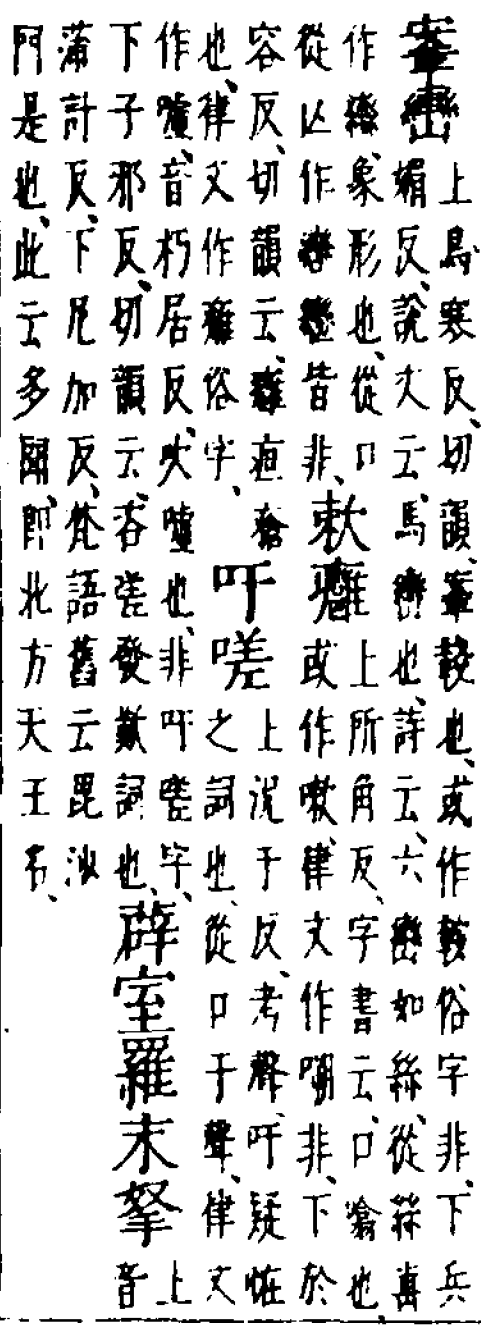 鞌轡上烏寒反、切韻、鞌鞍也、或作鞍俗字非、下兵
媚反、說文云、馬轡也、詩云、六轡如絲、從絲
作䜌、象形也、從口
從亾作皆非、
欶癰上所角反、字書云、口噏也、
或作嗽、律文作嗍非、下於
容反、切韻云、癰疽瘡
也、律文作雍俗字、
吁嗟上況于反、考聲吁疑怪
之詞也、從口于聲、律文
作嘘、音朽居反、吹嘘也、非吁嗟字、
下子邪反、切韻云、嗟發歎詞也、
薜室羅末拏上
音
蒲計反、下尼加反、梵語舊云毘沙
門是也、此云多聞、即北方天王名、